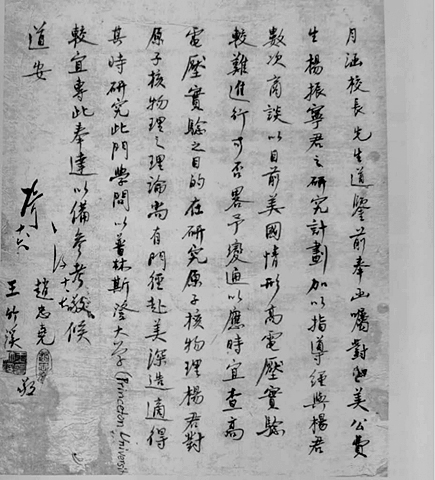 月涵校長先生道鑒前奉函囑對留美公費
生楊振寧君之研究計劃加以指導經與楊君
數次商談以目前美國情形高電壓實驗
較難進行可否畧予變通以應時宜查高
電壓實驗之目的在研究原子核物理楊君對
原子核物理之理論尚有門徑赴美深造適得
其時研究此門學問以普林斯登大學(Princeton Universit
較宜專此奉達以備參考敬候
道安
趙忠堯
王竹溪
敬
十六